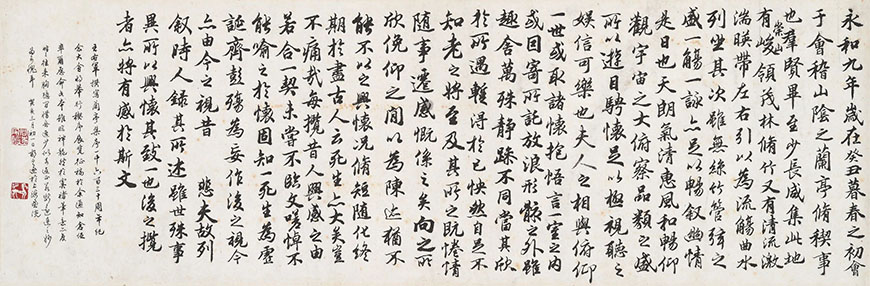 永和九年歲在癸丑暮春之初會
于會稽山陰之蘭亭脩稧事
也羣賢畢至少長咸集此地
有崇山峻領茂林脩竹又有清流激
湍暎帶左右引以為流觴曲水
列坐其次雖無絲竹管弦之
盛一觴一詠亦足以暢叙幽情
是日也天朗氣清惠風和暢仰
觀宇宙之大俯察品類之盛
所以遊目騁懷足以極視聽之
娛信可樂也夫人之相與俯仰
一世或取諸懷抱悟言一室之內
或因寄所託放浪形骸之外雖
趣舍萬殊靜躁不同當其欣
於所遇暫得於己怏然自足不
知老之將至及其所之既惓情
隨事遷感慨係之矣向之所
欣俛仰之間以為陳迹猶不
能不以之興懷況脩短隨化終
期於盡古人云死生亦大矣豈
不痛哉每攬昔人興感之由
若合一契未嘗不臨文嗟悼不
能喻之於懷固知一死生為虛
誕齊彭殤為妄作後之視今
亦由今之視昔 悲夫故列
叙時人錄其所述雖世殊事
異所以興懷其致一也後之攬
者亦將有感於斯文
王右軍撰寫蘭亭集序一千六百三十周年紀